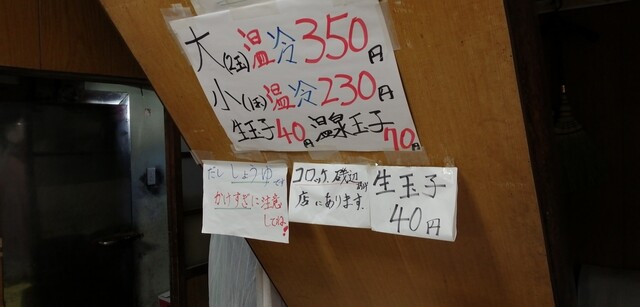 大(2玉)温冷350円
小(1玉)温冷230円
生玉子40円温泉玉子70円
だししょうゆです
かけすぎに注意
してね!
コロッケ、磯辺
店にあります。
生玉子
40円